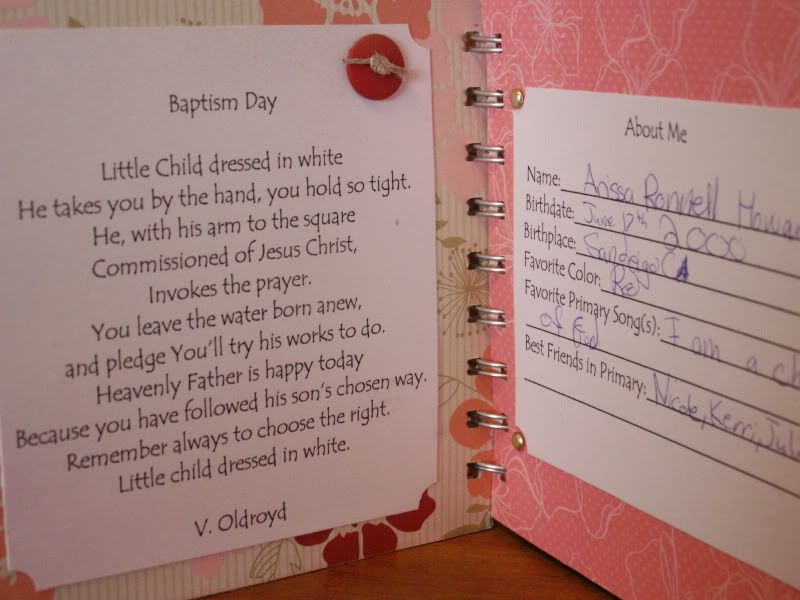 Baptism Day
Little Child dressed in white
He takes you by the hand, you hold so tight.
He, with his arm to the square
Commissioned of Jesus Christ,
Invokes the prayer.
You leave the water born anew,
and pledge You'll try his works to do.
Heavenly Father is happy today
Because you have followed his son's chosen way.
Remember always to choose the right.
Little child dressed in white.
V. Oldroyd
About Me
Name: Arissa
Birthdate: June 17th 2000
Birthplace: CA
Favorite Color: Red
Favorite Primary Song(s): I am a
of God
Best Friends in Primary: Nicole, Kerri,